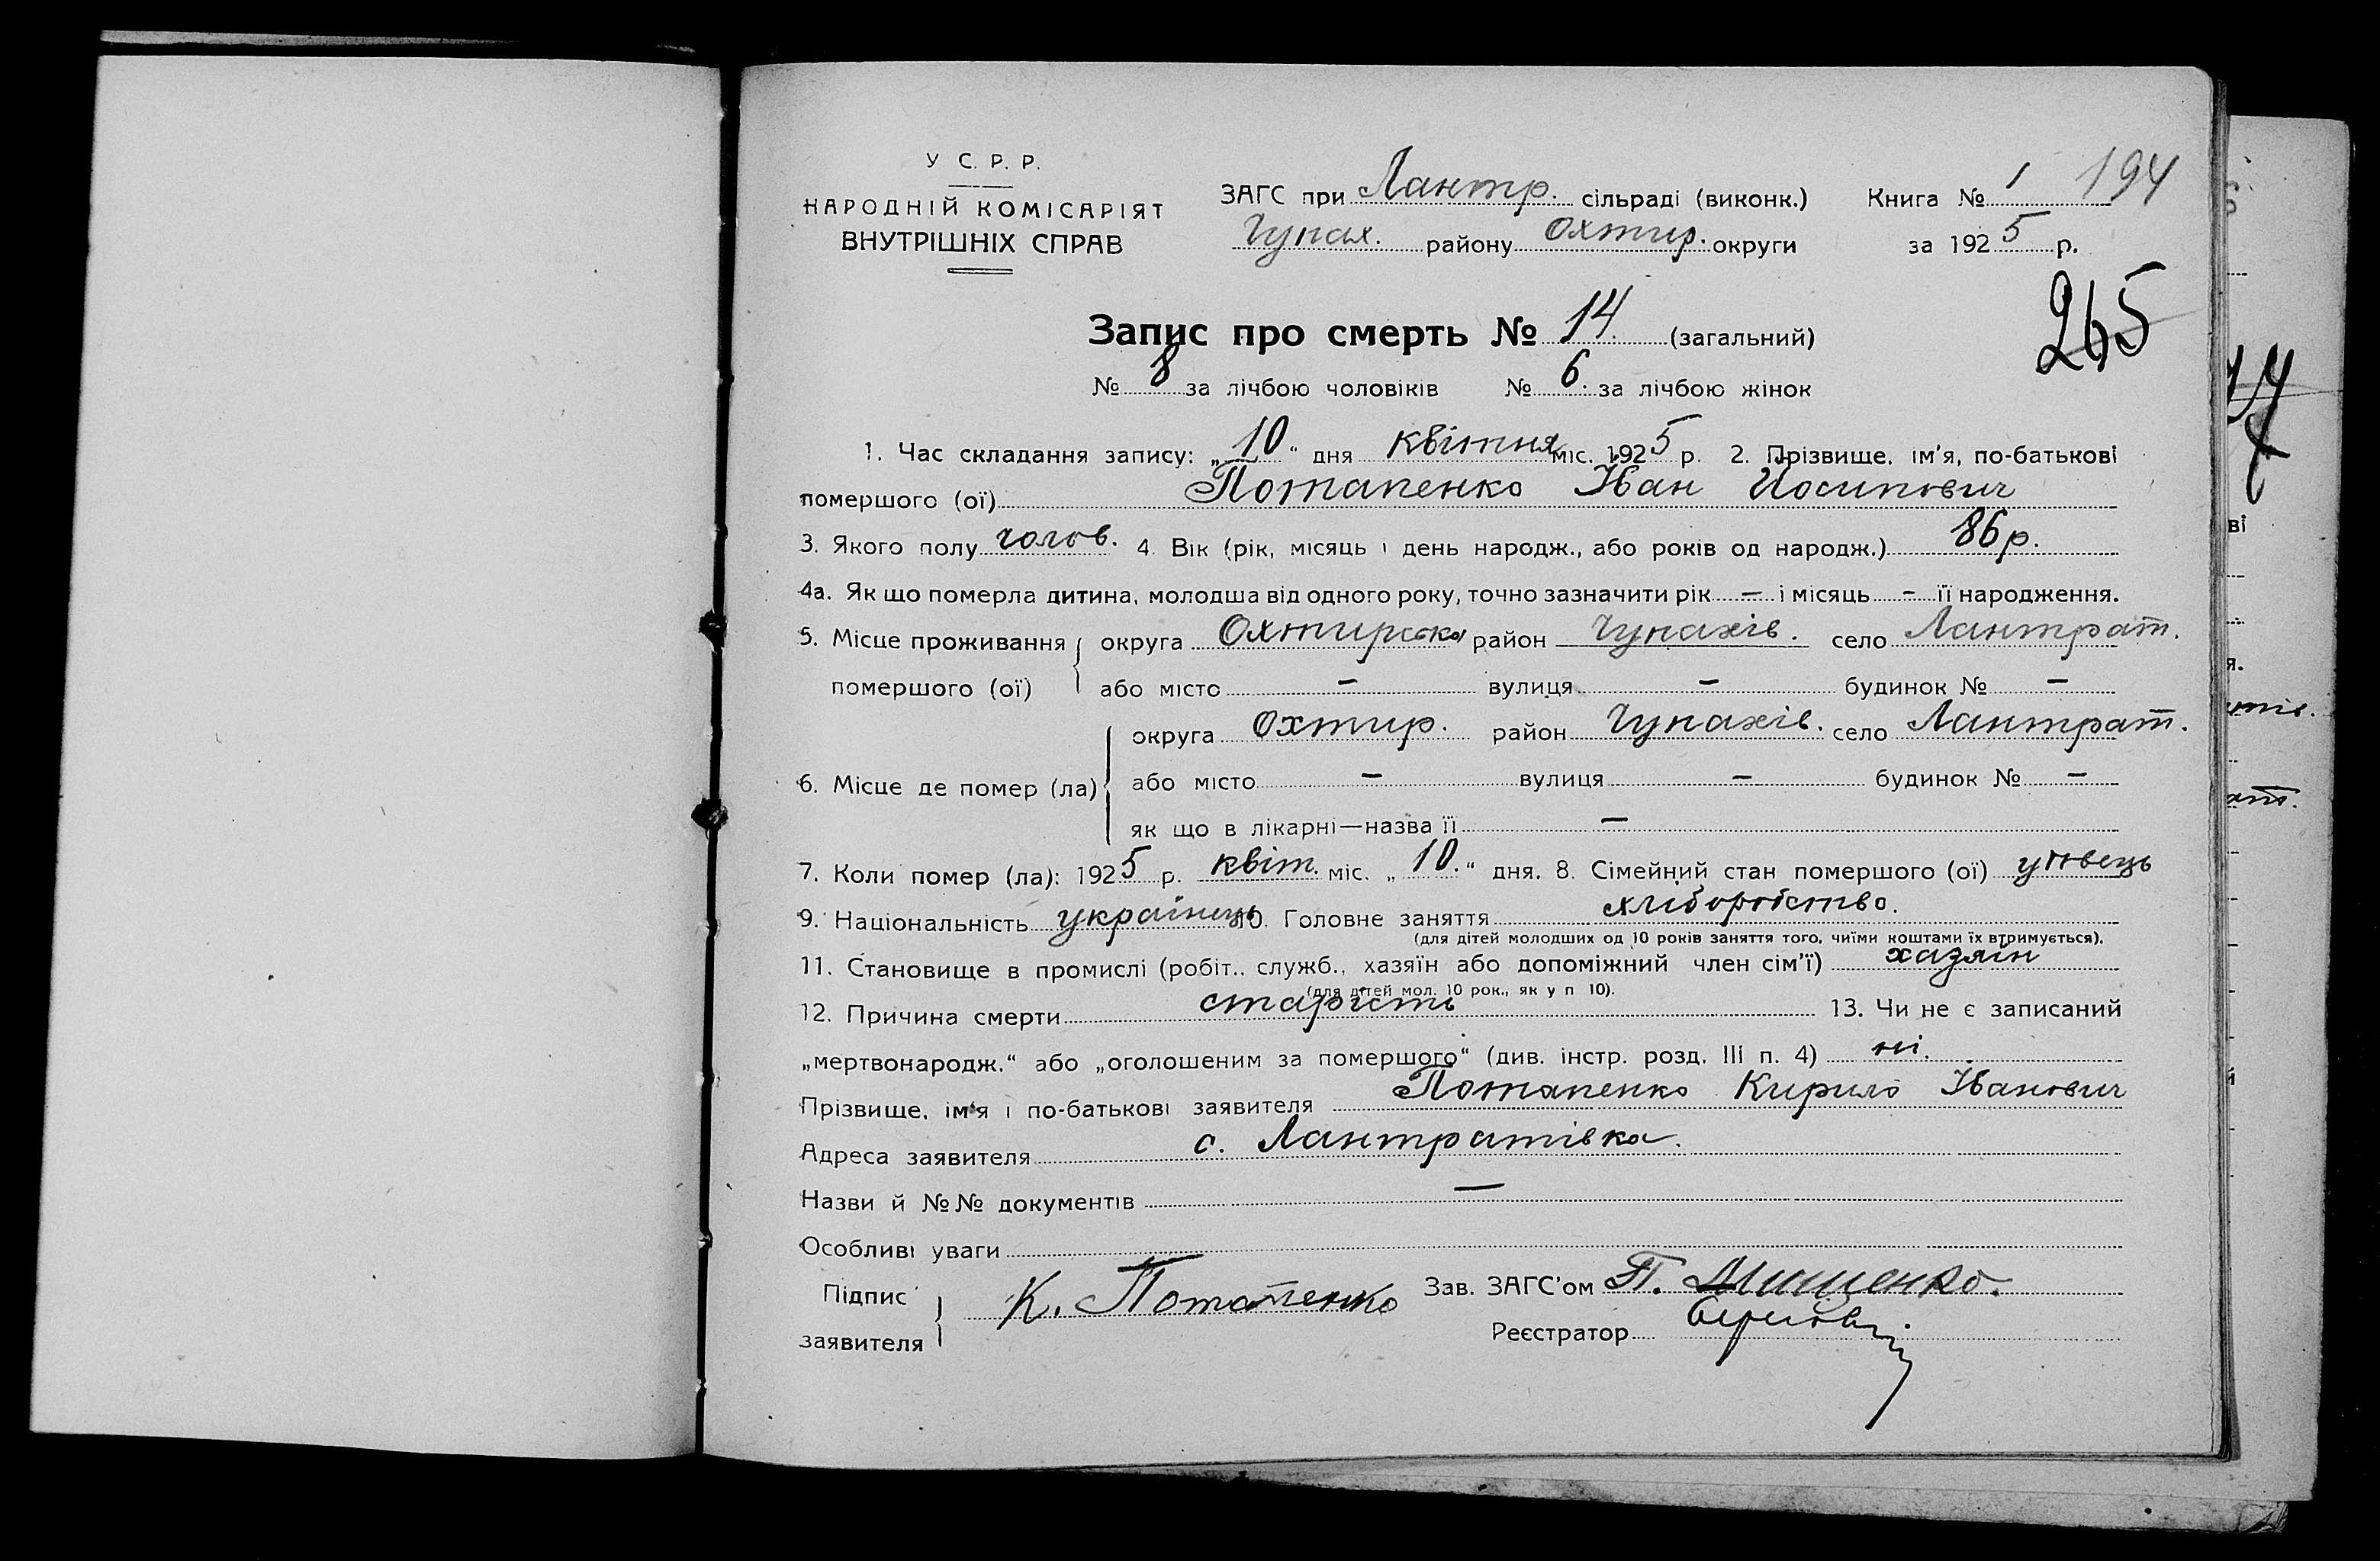 У С. Р. Р.
НАРОДНІЙ КОМІСАРІЯТ
ВНУТРІШНІХ СПРАВ
ЗАГС при Лантр. сільраді (виконк.) Книга № 1 194
Чупах. району Охтир. округи за 1925 р.
265
Запис про смерть № 14. (загальний)
№ 8 за лічбою чоловіків № 6. за лічбою жінок
1. Час складання запису: „10“ дня квітня міс. 1925 р. 2. Прізвище, ім'я, по-батькові
помершого (ої) Потапенко Іван Йосипович
3. Якого полу чолов. 4. Вік (рік, місяць і день народж., або років од народж.) 86 р.
4а. Як що померла дитина, молодша від одного року, точно зазначити рік — і місяць — її народження.
5. Місце проживання округа Охтирська район Чупахів. село Лантрат.
помершого (ої) або місто — вулиця — будинок № —
округа Охтир. район Чупахів. село Лантрат.
6. Місце де помер (ла) або місто — вулиця — будинок № —
як що в лікарні—назва її —
7. Коли помер (ла): 1925 р. квіт. міс. „10.“ дня. 8. Сімейний стан помершого (ої) удовець
9. Національність українець 10. Головне заняття хліборобство.
(для дітей молодших од 10 років заняття того, чиїми коштами їх втримується).
11. Становище в промислі (робіт., служб., хазяїн або допоміжний член сім'ї) хазяїн
(для дітей мол. 10 рок., як у п 10).
12. Причина смерти старість 13. Чи не є записаний
„мертвонародж.“ або „оголошеним за помершого“ (див. інстр. розд. III п. 4) ні.
Прізвище, ім'я і по-батькові заявителя Потапенко Кирило Іванович
Адреса заявителя с. Лантратівка.
Назви й №№ документів —
Особливі уваги
Підпис заявителя К. Потапенко Зав. ЗАГС'ом П. Мищенко.
Реєстратор